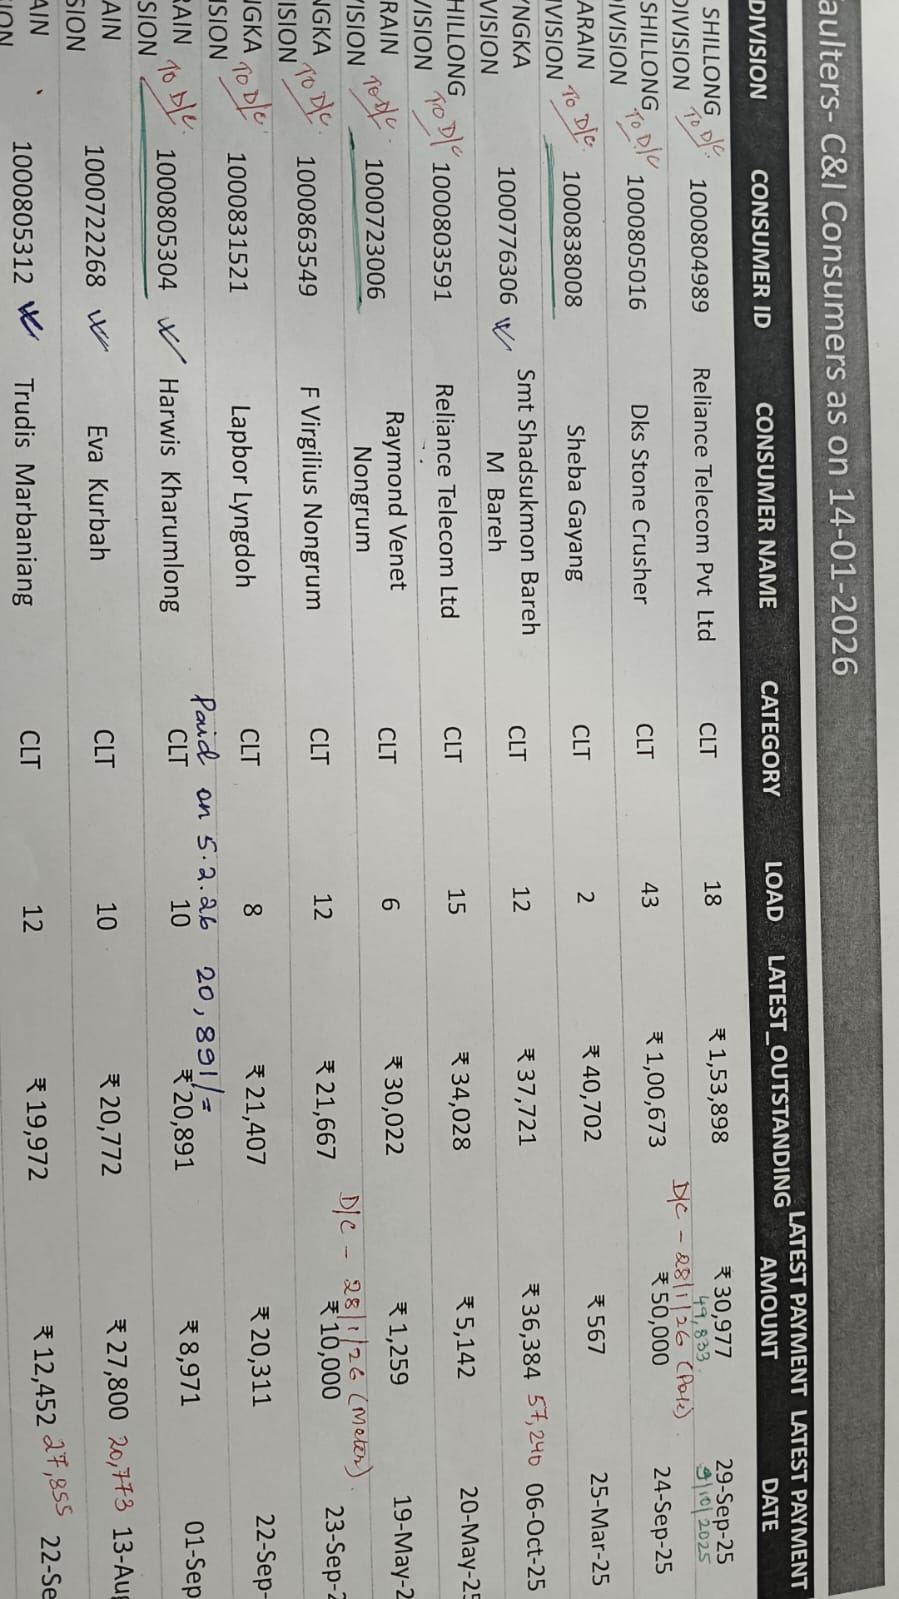 aulters- C&I Consumers as on 14-01-2026
DIVISION CONSUMER ID CONSUMER NAME CATEGORY LOAD LATEST_OUTSTANDING LATEST PAYMENT AMOUNT LATEST PAYMENT DATE
SHILLONG DIVISION To D/c. 1000804989 Reliance Telecom Pvt Ltd CLT 18 ₹ 1,53,898 ₹ 30,977 29-Sep-25
49,833. 9/10/2025
D/c - 28/1/26 (Pole)
SHILLONG DIVISION To D/c 1000805016 Dks Stone Crusher CLT 43 ₹ 1,00,673 ₹ 50,000 24-Sep-25
ARAIN IVISION To D/c. 1000838008 Sheba Gayang CLT 2 ₹ 40,702 ₹ 567 25-Mar-25
YNGKA VISION 1000776306 Smt Shadsukmon Bareh M Bareh CLT 12 ₹ 37,721 ₹ 36,384 57,240 06-Oct-25
HILLONG VISION To D/c 1000803591 Reliance Telecom Ltd CLT 15 ₹ 34,028 ₹ 5,142 20-May-25
RAIN VISION To D/c. 1000723006 Raymond Venet Nongrum CLT 6 ₹ 30,022 ₹ 1,259 19-May-2
D/c - 28/1/26 (Meter).
NGKA ISION To D/c. 1000863549 F Virgilius Nongrum CLT 12 ₹ 21,667 ₹ 10,000 23-Sep-2
NGKA ISION To D/c. 1000831521 Lapbor Lyngdoh CLT 8 ₹ 21,407 ₹ 20,311 22-Sep-
Paid on 5.2.26 20,891/=
RAIN SION To D/c. 1000805304 Harwis Kharumlong CLT 10 ₹ 20,891 ₹ 8,971 01-Sep
AIN SION 1000722268 Eva Kurbah CLT 10 ₹ 20,772 ₹ 27,800 20,773 13-Aug
AIN ION 1000805312 Trudis Marbaniang CLT 12 ₹ 19,972 ₹ 12,452 27,855 22-Se